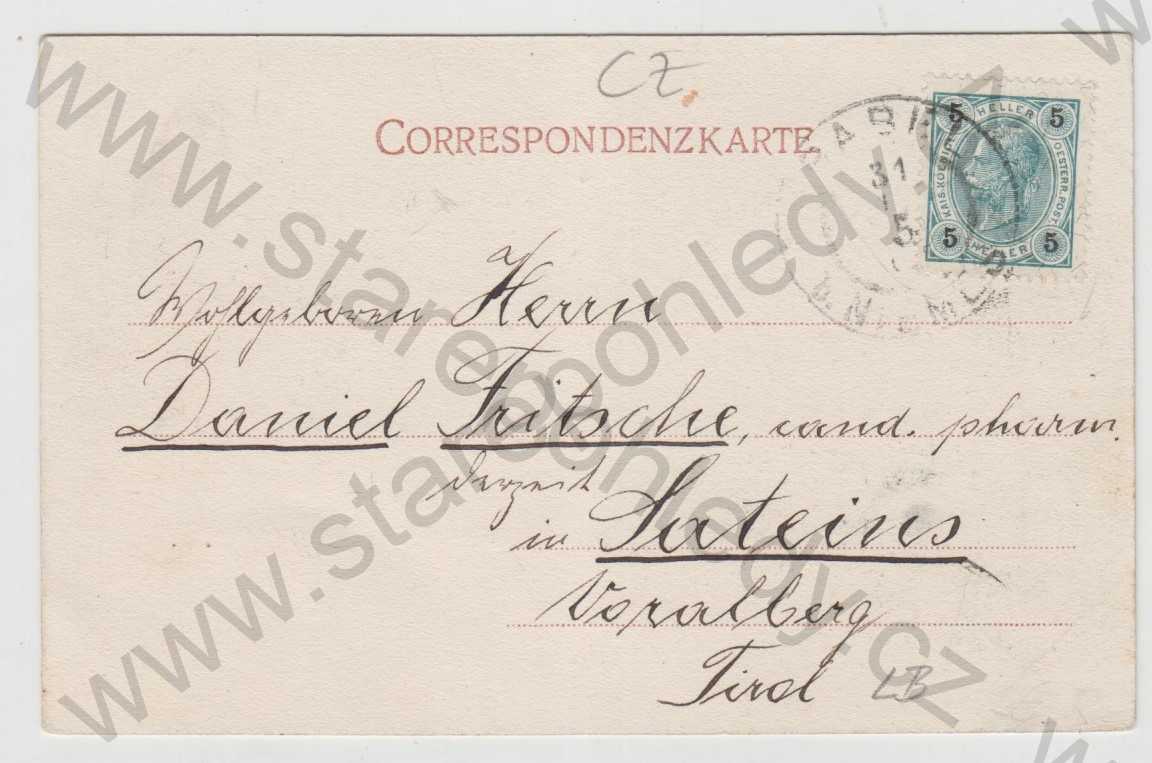 CZ
CORRESPONDENZKARTE
5 HELLER 5
KAIS. KOENIGL. OESTERR. POST.
5 HELLER 5
31
5
Wohlgeboren Herrn
Daniel Fritsche, cand. pharm.
derzeit
in Sateins
Voralberg
Tirol LB
www.starepohledy.cz
www.starepohledy.cz